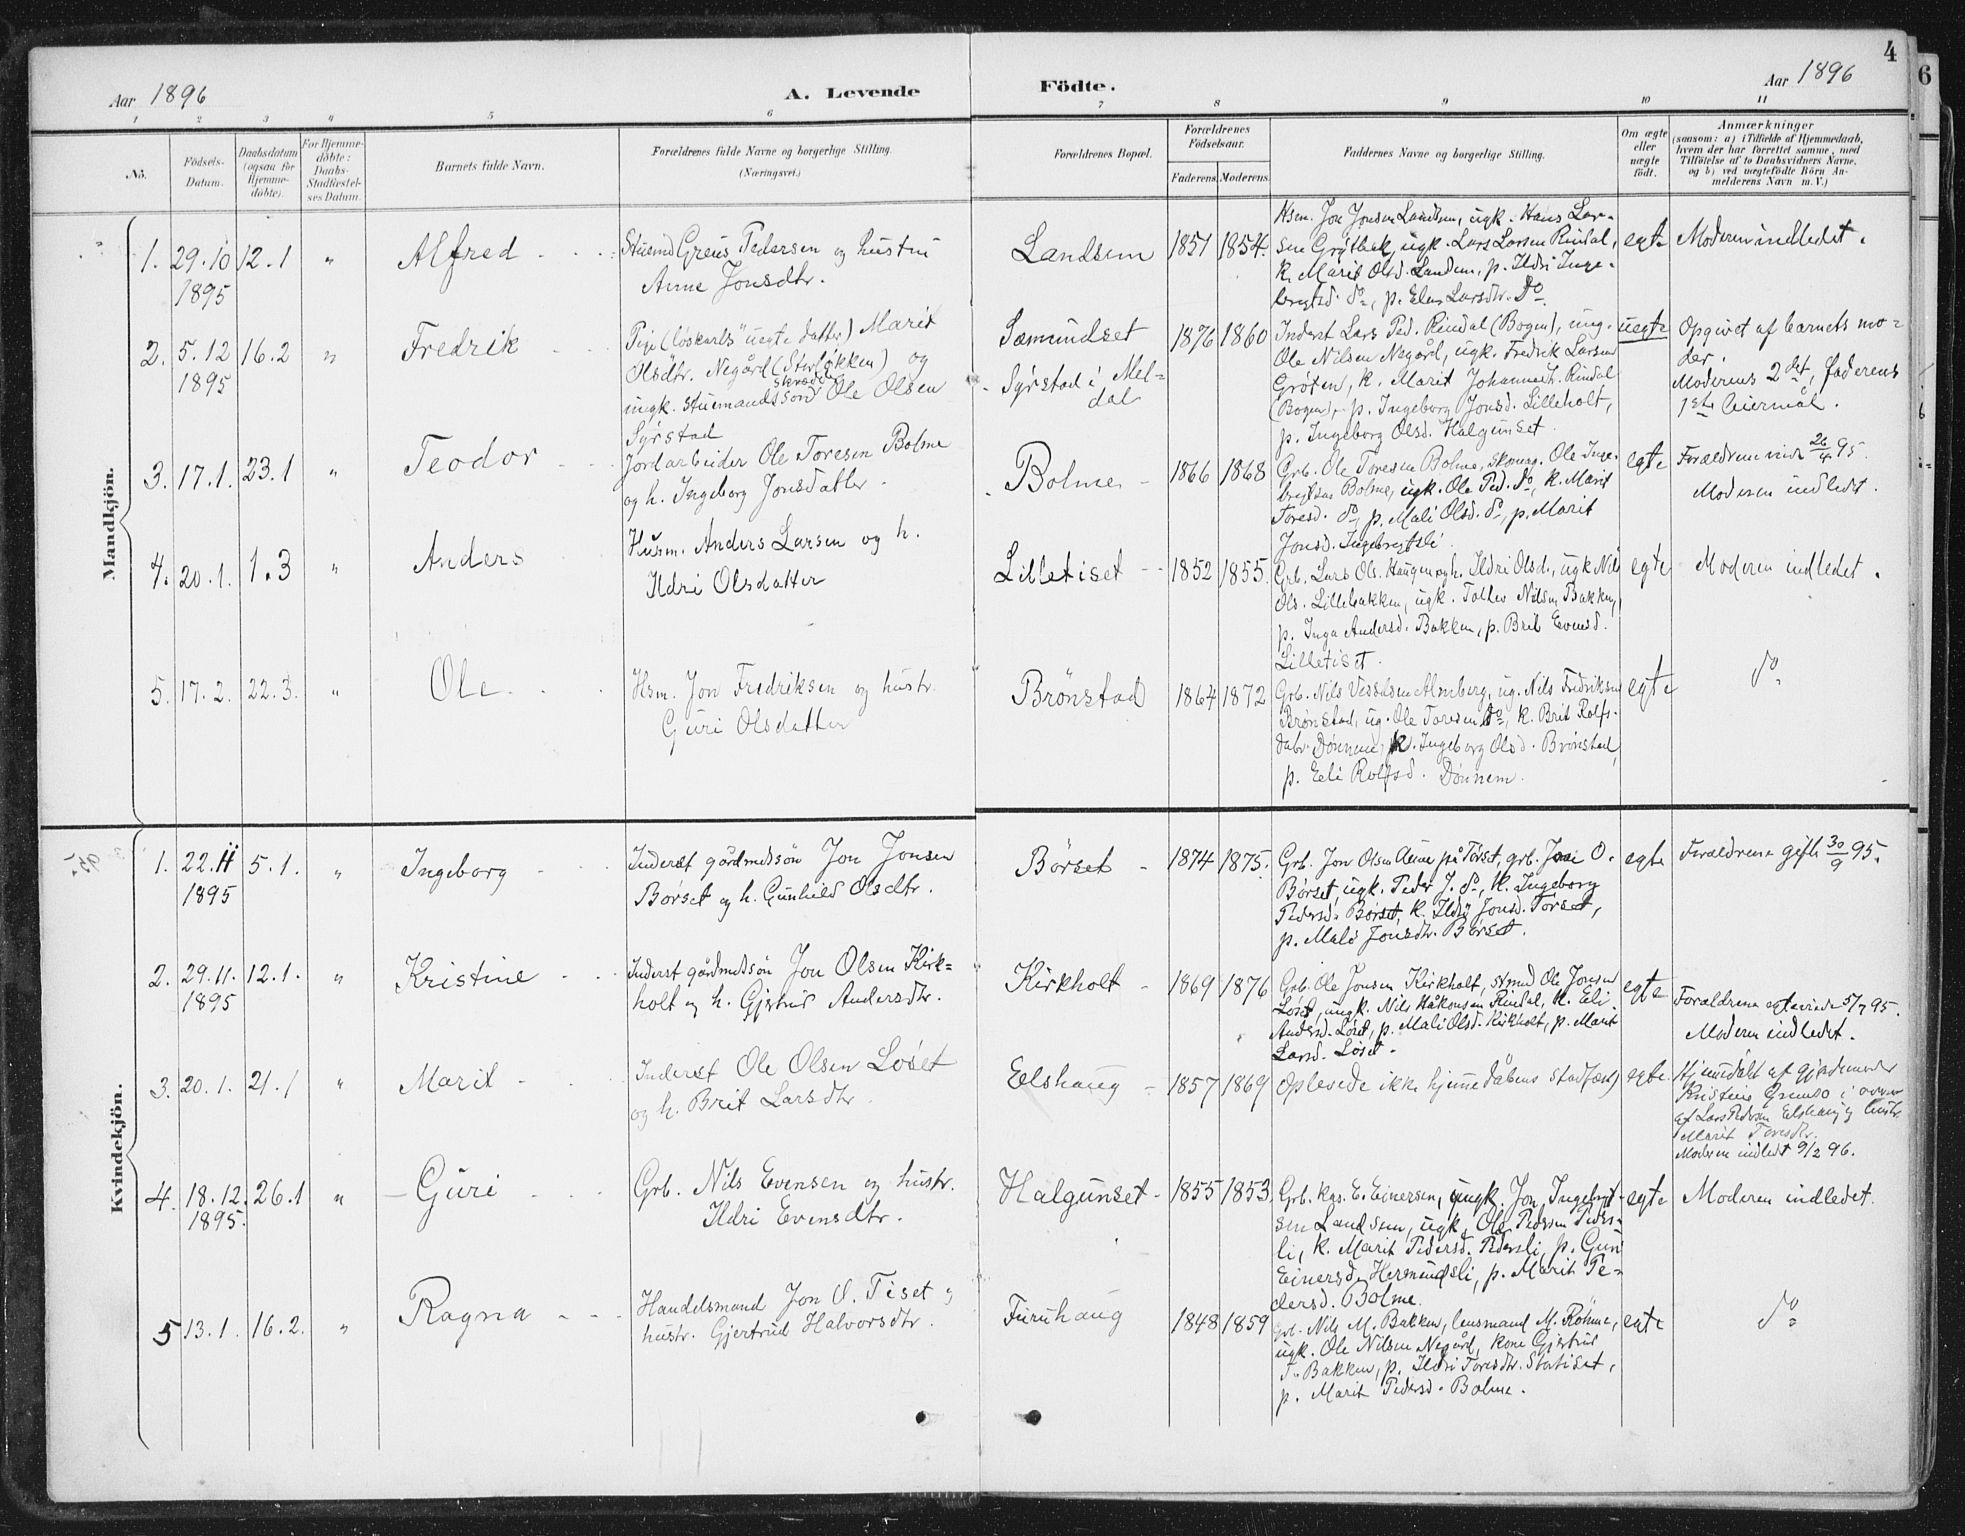 4
6
Aar 1896
A. Levende
Födte.
Aar 1896
1 2 3 4 5 6 7 8 9 10 11
No.
Födsels-
Datum.
Daabsdatum
(ogsaa for
Hjemme-
döbte).
For Hjemme-
döbte:
Daabs-
Stadfæstel-
ses Datum.
Barnets fulde Navn.
Forældrenes fulde Navne og borgerlige Stilling.
(Næringsvei.)
Forældrenes Bopæl.
Forældrenes
Födselsaar.
Faderens. Moderens.
Faddernes Navne og borgerlige Stilling.
Om ægte
eller
uægte
födt.
Anmærkninger
(saasom: a) i Tilfælde af Hjemmedaab,
hvem der har forrettet samme, med
Tilföielse af to Daabsvidners Navne,
og b) ved uægtefödte Börn An-
melderens Navn m. V.)
Mandkjön.
1. 29.10 12.1 " Alfred
1895
og hustru
Anne Jonsdtr.
Landsem 1851 1854.
Hsm. Jon Jonsen Landsem, ugk. Hans Lar-
sen Grytbak, ugk. Lars Larsen Rindal,
k. Marit Olsd. Landsem, p. Ildri Inge-
brigtsd. do, p. Elen Larsdtr. Do
egte Moderen indledet.
2. 5.12 16.2 " Fredrik
1895
Pige (löskarls uegte datter) Marit
Olsdtr. Negård (Storløkken) og
ungk. Stuemandssøn skrædder Ole Olsen
Syrstad
Sæmundset
Syrstad i Mel-
dal
1876 1860
Inderst Lars Ped. Rindal (Bogen), ung.
Ole Nilsen Negård, ugk. Fredrik Larsen
Grøten, k. Marit Johannesdtr. Rindal
(Bogen), p. Ingeborg Jonsd. Lilleholt,
p. Ingeborg Olsd. Halgunset.
uegte
Opgivet af barnets mo-
der.
Moderens 2det, faderens
1ste leiermål.
3. 17.1. 23.1 " Teodor
Jordarbeider Ole Toresen Bolme
og h. Ingeborg Jonsdatter.
Bolme 1866 1868
Grb. Ole Toresen Bolme, Ole Inge-
brigtsen Bolme, ugk. Ole Ped. Do, k. Marit
Toresd. do, p. Mali Olsd. do, p. Marit
Jonsd. Ingebrigtsli.
egte
Forældrene viede 26/4 95.
Moderen indledet.
4. 20.1. 1.3 " Anders
Husm. Anders Larsen og h.
Ildri Olsdatter
Lilletiset 1852 1855.
Grb. Lars Ols. Haugen og h. Ildri Olsd., ugk Nils
Ols. Lillebakken, ugk. Nilsen Bakken,
p. Inga Andersd. Bakken, p. Brit Evensd.
Lilletiset.
egte Moderen indledet.
5. 17.2. 22.3. " Ole
Hsm. Jon Fredriksen og hustr.
Guri Olsdatter
Brönstad 1864 1872
Grb. Nils Almberg, ug. Nils Fredriksen
Brönstad, ug. Ole Toresen Do, k. Brit Rolfs-
datr. Dönnem, k. Ingeborg Olsd. Brönstad,
p. Eli Rolfsd. Dönnem.
egte do
Kvindekjön.
1. 22.11 5.1. " Ingeborg
1895
Inderst gårdmdssön Jon Jonsen
Börset og h. Gunhild Olsdtr.
Börset 1874 1875.
Grb. Jon Olsen Aune på Torset, grb. Jon O.
Börset, ugk. Peder J. do, k. Ingeborg
Pedersd. Börset, k. Ildri Jonsd. Torset,
p. Mali Jonsdtr. Börset.
egte Forældrene gifte 30/9 95.
2. 29.11. 12.1. " Kristine
1895
Inderst gårdmdssön Jon Olsen Kirk-
holt og h. Gjertrud Andersdtr.
Kirkholt 1869 1876
Grb. Ole Jonsen Kirkholt, stmnd Ole Jonsen
Löset, ungk. Nils Håkonsen Rindal, k. Eli
Andersd. Löset, p. Mali Olsd. Kirkholt, p. Marit
Larsd. Löset.
egte
Forældrene egteviede 5/7 95.
Moderen indledet.
3. 20.1. 21.1 " Marit
Inderst Ole Olsen Löset
og h. Brit Larsdtr.
Elshaug 1857 1869
Oplevede ikke hjemmedåbens stadfæst.
egte.
Hjemmedöbt af gjordemoder
Kristine
af Lars Pedersen Elshaug og hustr.
Marit Toresdtr.
Moderen indledt 9/2 96.
4. 18.12. 26.1 " Guri
1895.
Grb. Nils Evensen og hustr.
Ildri Evensdtr.
Halgunset 1855 1853
Grb. E. Einersen, ungk. Jon Ingebrigt-
sen Landsem, ugk. Ole Pedersen Peders-
li, k. Marit Pedersd. Pedersli, p. Guri
Einersd. Hermundsli, p. Marit Pe-
dersd. Bolme.
egte Moderen indledet.
5 13.1. 16.2. " Ragna
Handelsmand Jon O. Tiset og
hustr. Gjertrud Halvorsdtr.
Furuhaug 1848 1859
Grb. Nils M. Bakken, lensmand M. Röhme,
ugk. Ole Nilsen Negård, kone Gjertrud
T. Bakken, p. Ildri Toresdtr. Stortiset,
p. Marit Pedersd. Bolme.
egte do